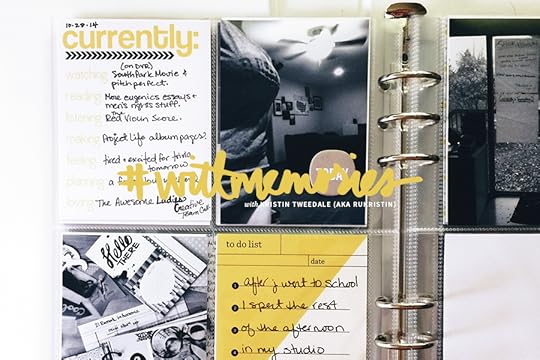 10-28-14
currently:
(on DVR)
watching South Park Movie &
pitch perfect.
reading More eugenics essays +
men's rights stuff.
listening Red Violin Score.
making Project Life album pages!
feeling tired + excited for trivia
tomorrow
planning a
loving The Awesome Ladies
Creative
Team Call
#witlmemories
with KRISTIN TWEEDALE (AKA RUKRISTIN)
Hello
THERE
to do list
date
1 after j went to school
2 I spent the rest
3 of the afternoon
4 in my studio